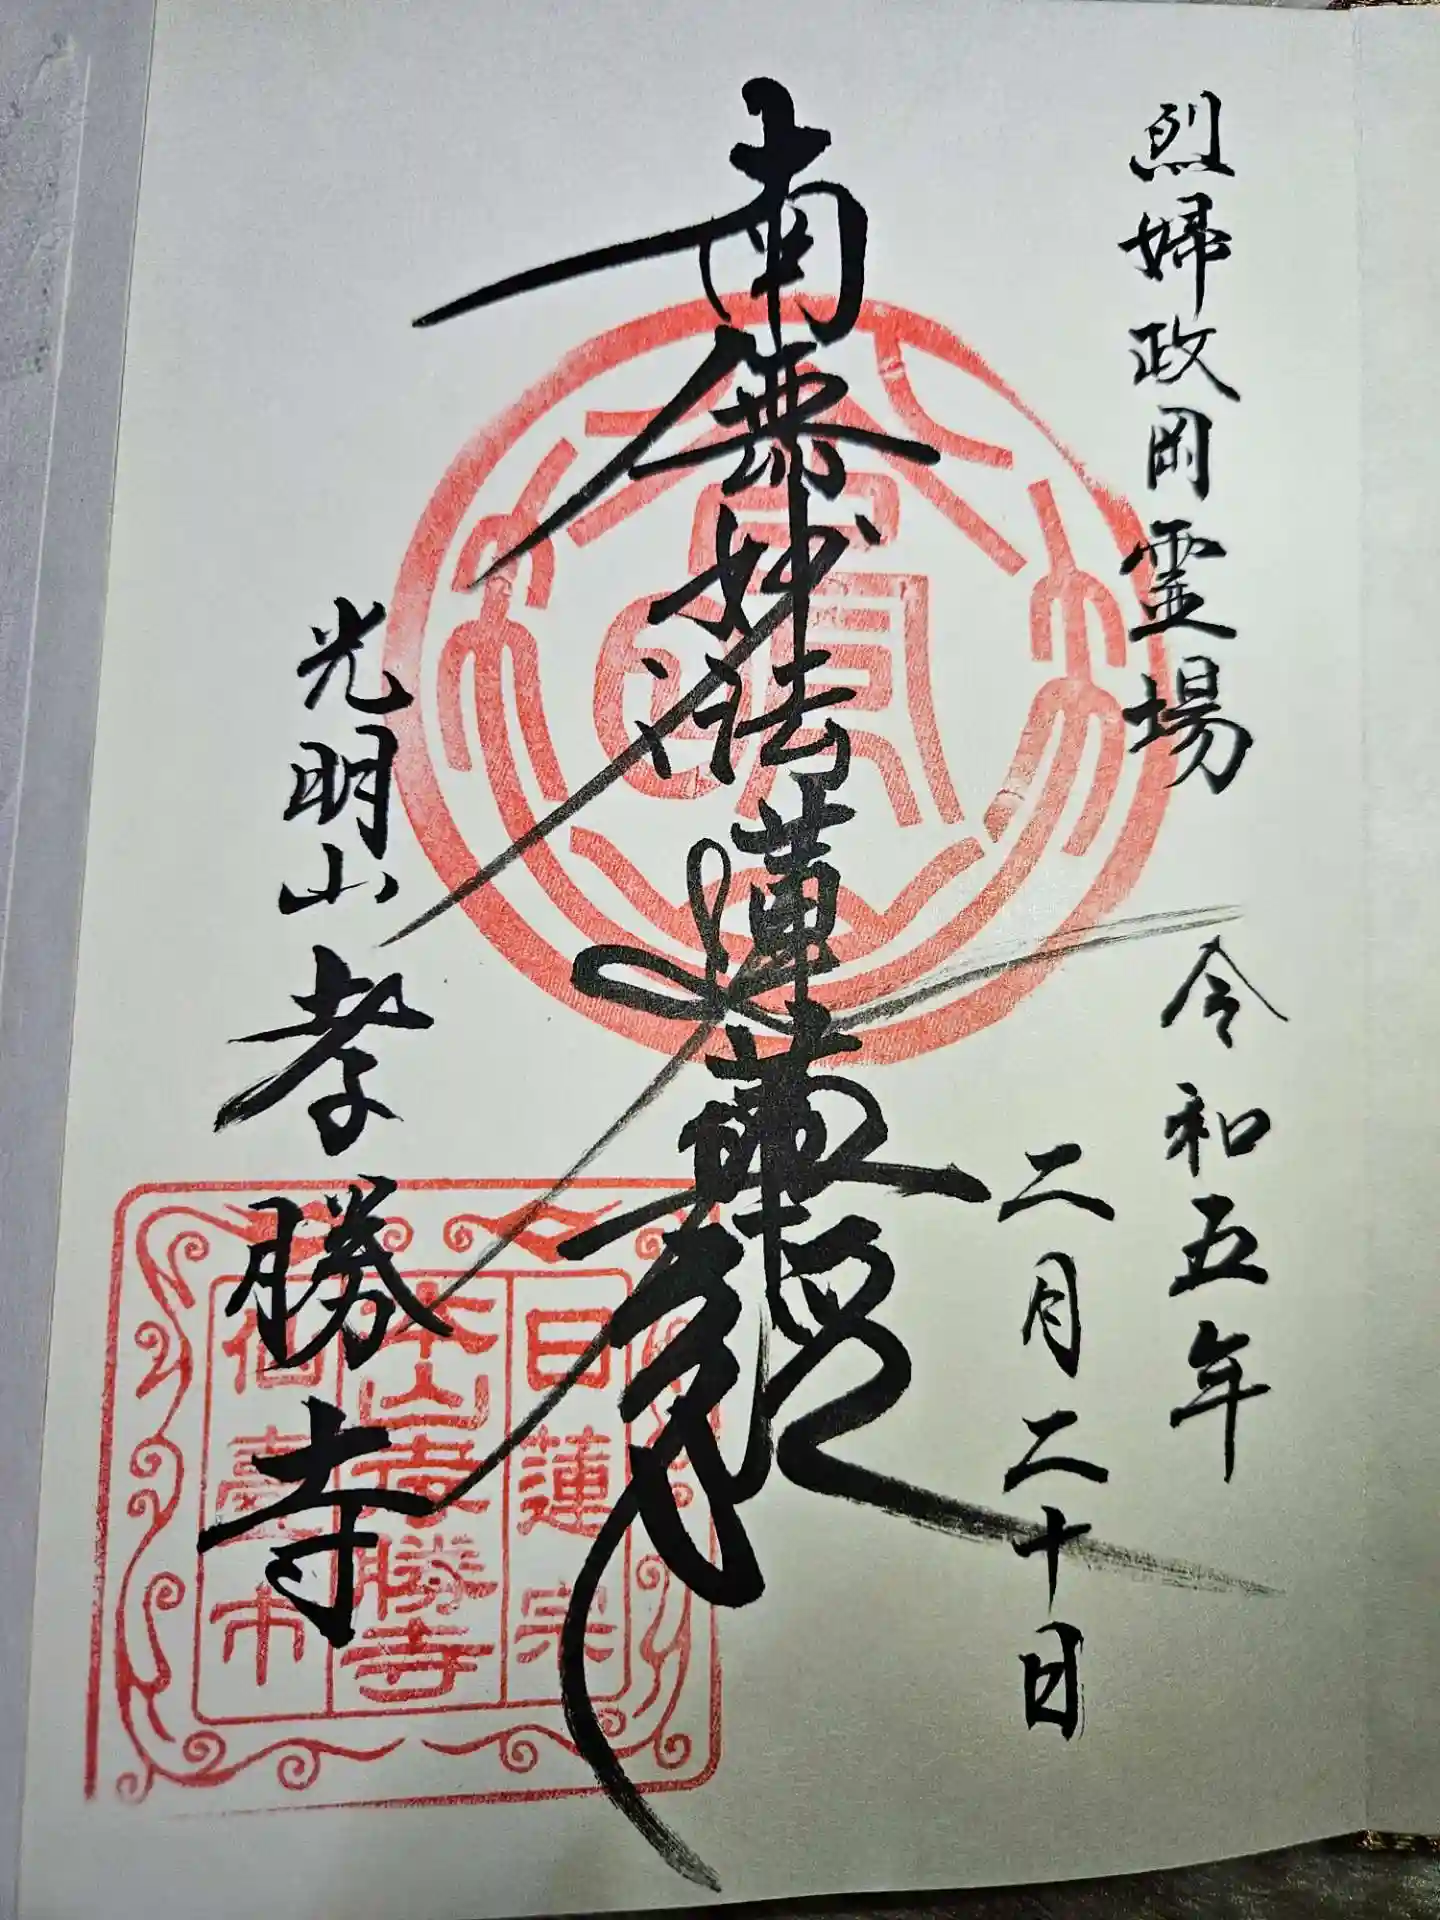 烈婦政岡霊場
令和五年
二月二十日
南無妙法蓮華經
光明山 孝勝寺
日蓮宗
本山孝勝寺
仙臺市